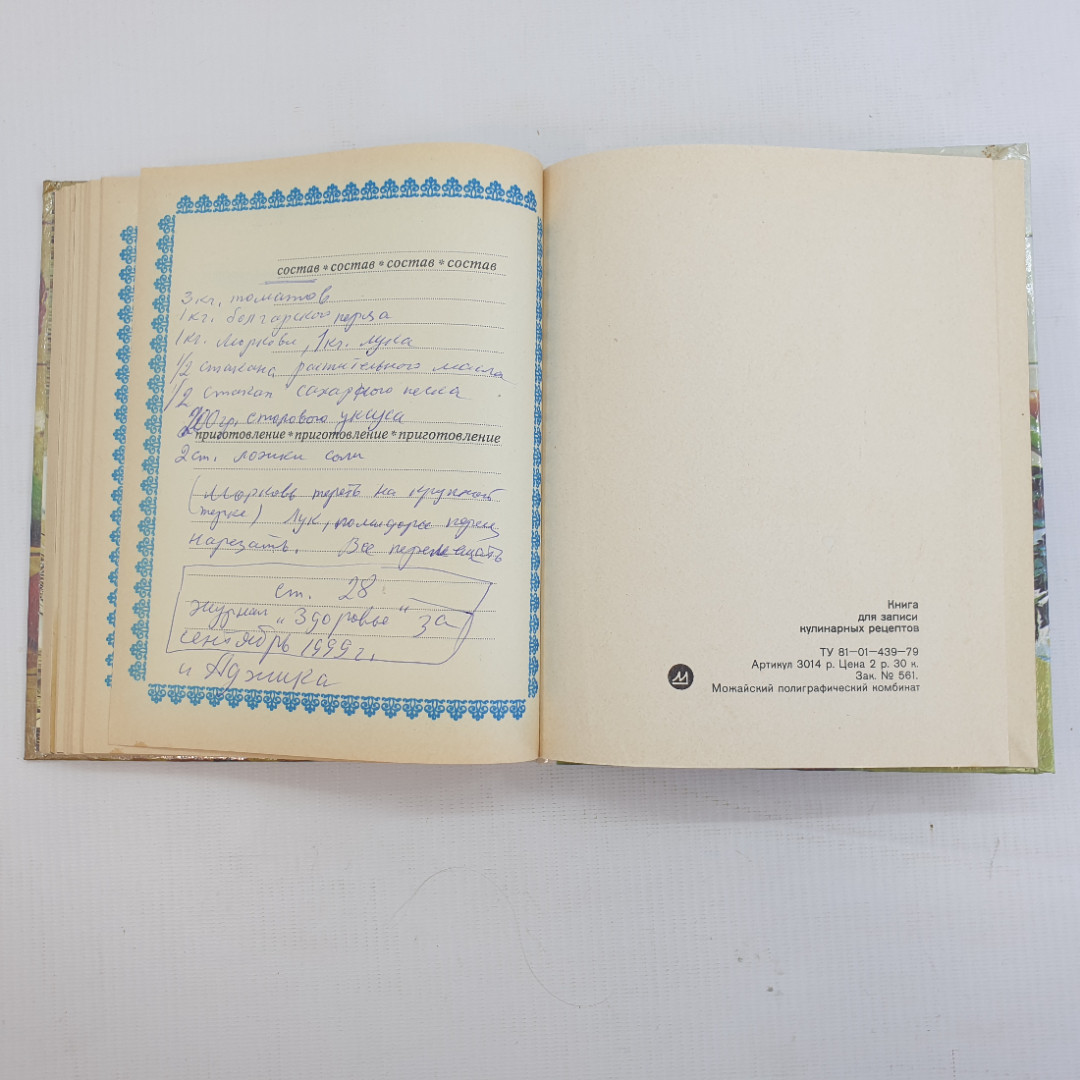 состав * состав * состав * состав
3 кг. томатов
1 кг. болгарского перца
1 кг. Моркови, 1 кг. лука
1/2 стакана растительного масла
1/2 стакан сахарного песка
200 гр. столового уксуса
приготовление * приготовление * приготовление
2 ст. ложки соли
(Морковь тереть на крупной
терке) Лук, помидоры перец
нарезать. Все перемешать
ст. 28
журнал „Здоровье" за
сентябрь 1999 г.
и Аджика
Книга
для записи
кулинарных рецептов
ТУ 81—01—439—79
Артикул 3014 р. Цена 2 р. 30 к.
Зак. № 561.
Можайский полиграфический комбинат